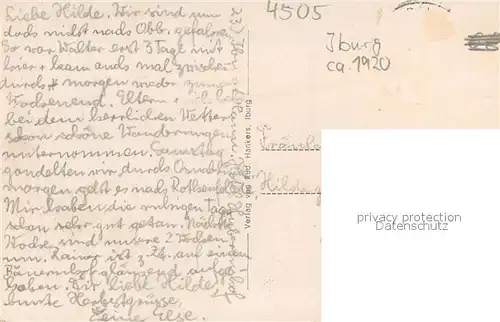 Liebe Hilde. Wir sind nun
doch nicht nach Obb. gefahren.
So war Walter erst 3 Tage mit
hier + kam auch mal zwischen
durch + morgen wieder zum
Wochenend. Eltern +
bei dem herrlichen Wetter
schon schöne Wanderungen
unternommen. Samstag
gondelten wir durch
morgen geht es nach Rothenfelde
Mir haben die ruhigen Tage
schon sehr gut getan. Nächste
Woche sind unsere 2 Wochen
um. Rainer ist z. Zt. auf einem
Bauernhof glänzend aufge-
hoben. Dir, liebe Hilde
bunte Herbstgrüsse,
Deine Else.
Verlag von Rud. Hankers, Iburg
4505
Iburg
ca. 1920
Fräulein
Hildeg
privacy protection
Datenschutz